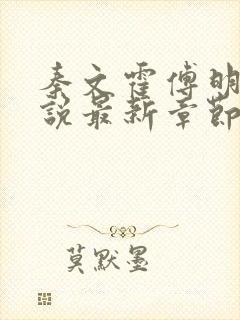 秦文霍傅明
说最新章节
莫默墨